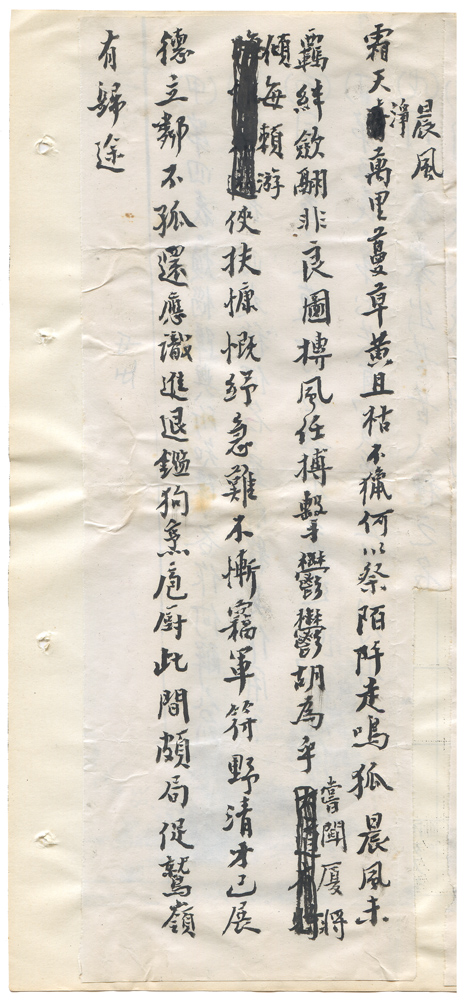 晨風
霜天淨萬里蔓草黄且枯不獵何以祭陌阡走鳴狐晨風未
羈絆斂翮非良圖摶風任搏擊鬱鬱胡為乎嘗聞厦將
傾每賴游俠扶慷慨紓急難不慚竊軍符野清才已展
德立鄰不孤還應識進退鑑狗烹庖厨此間頗局促鷲嶺
有歸途